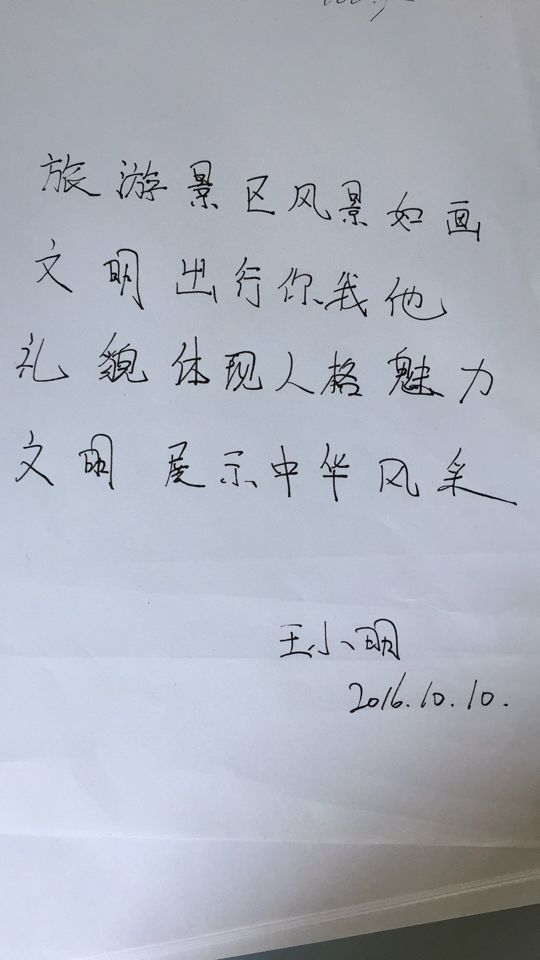 旅游景区风景如画
文明出行你我他
礼貌体现人格魅力
文明展示中华风采
王小明
2016.10.10.